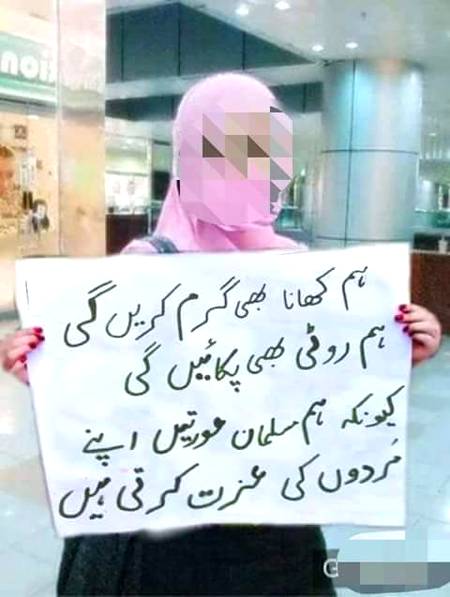 ہم کھانا بھی گرم کریں گی
ہم روٹی بھی پکائیں گی
کیونکہ ہم مسلمان عورتیں اپنے
مُردوں کی عزت کرتی ہیں